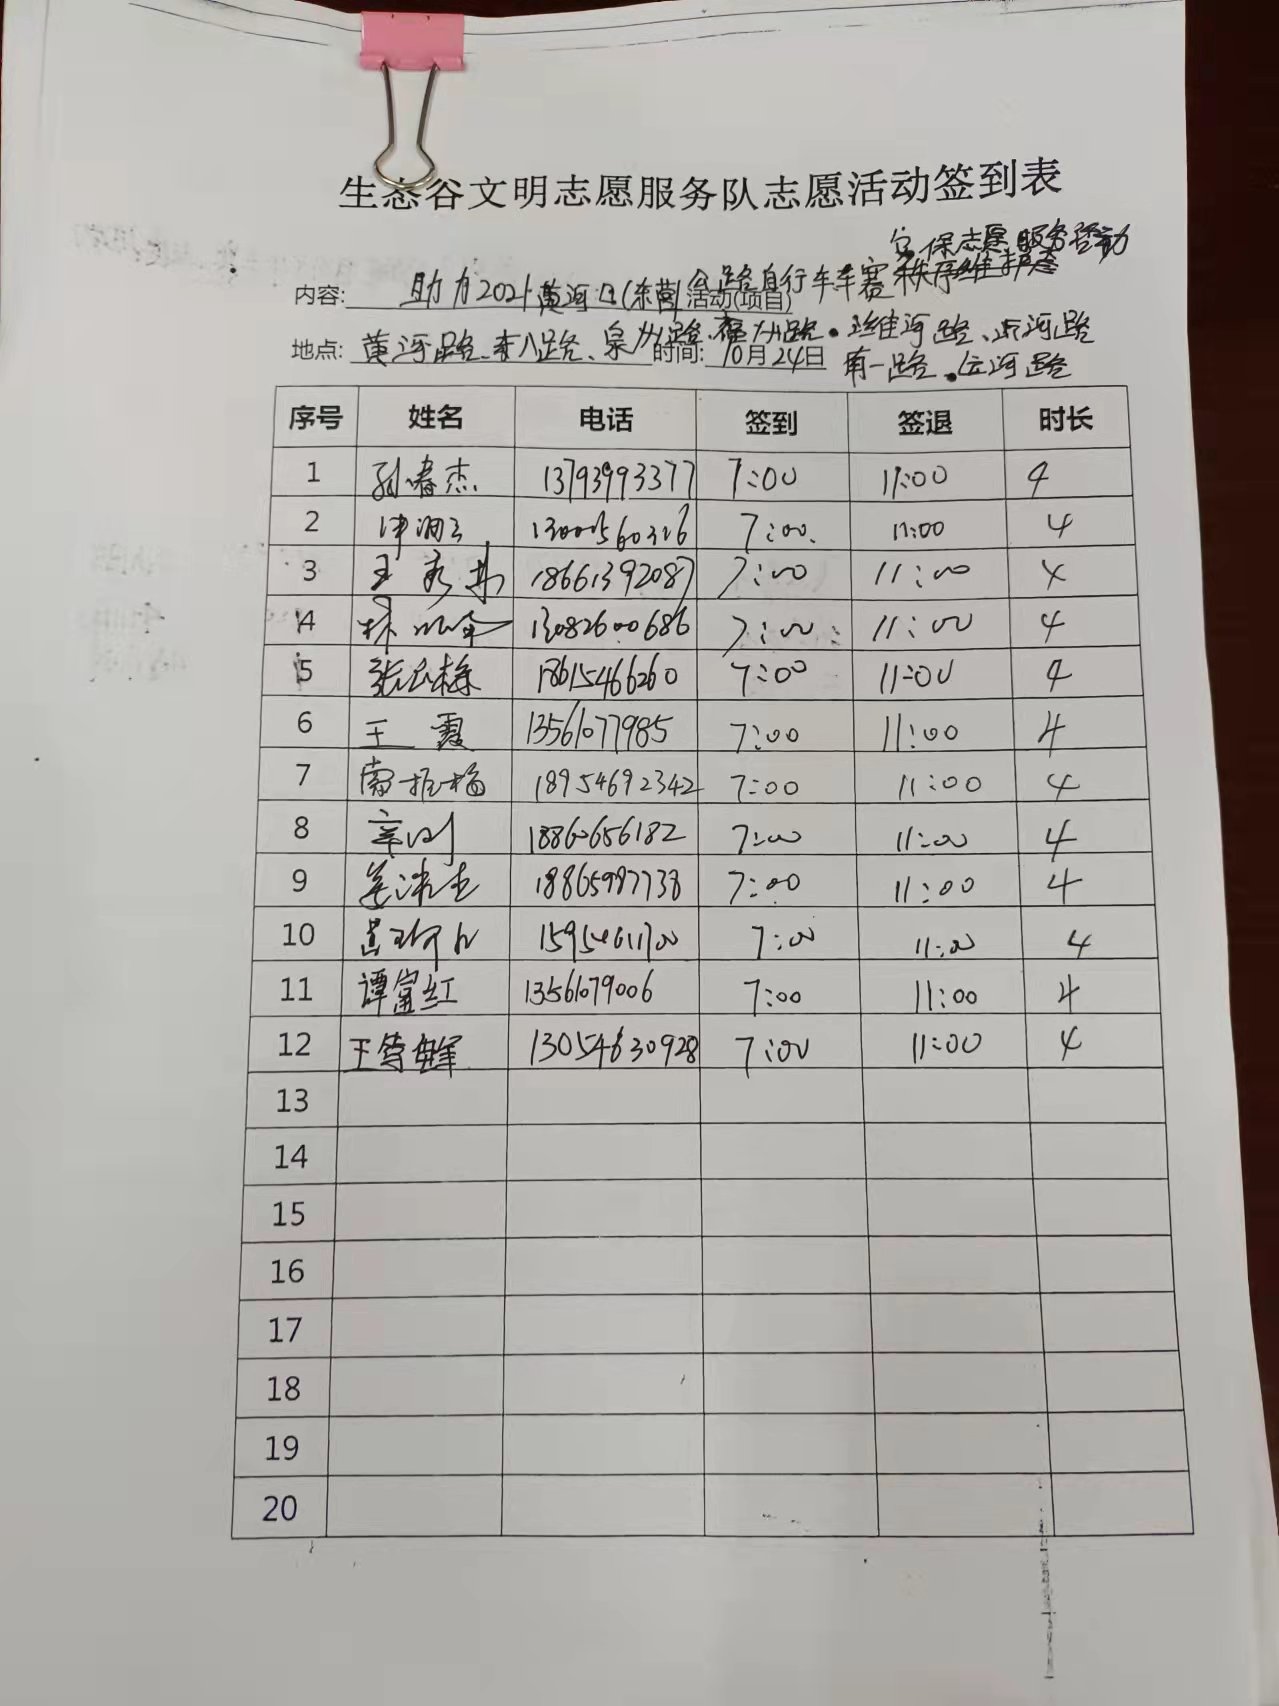 生态谷文明志愿服务队志愿活动签到表
保志愿服务活动
内容: 助力2021黄河口(东营)公路自行车车赛秩序维护 活动(项目)
地点: 黄河路、东八路、泉州路、福州路、潍河路、沂河路
时间: 10月24日 南一路、
序号 姓名 电话 签到 签退 时长
1 孙春杰 13793993377 7:00 11:00 4
2 7:00 11:00 4
3 王 18661392087 7:00 11:00 4
4 林 13082600686 7:00 11:00 4
5 张 18615466260 7:00 11:00 4
6 王霞 13561077985 7:00 11:00 4
7 18954692342 7:00 11:00 4
8 18860656182 7:00 11:00 4
9 姜 18865987738 7:00 11:00 4
10 15954611700 7:00 11:00 4
11 谭富红 13561079006 7:00 11:00 4
12 王 13054630928 7:00 11:00 4
13
14
15
16
17
18
19
20